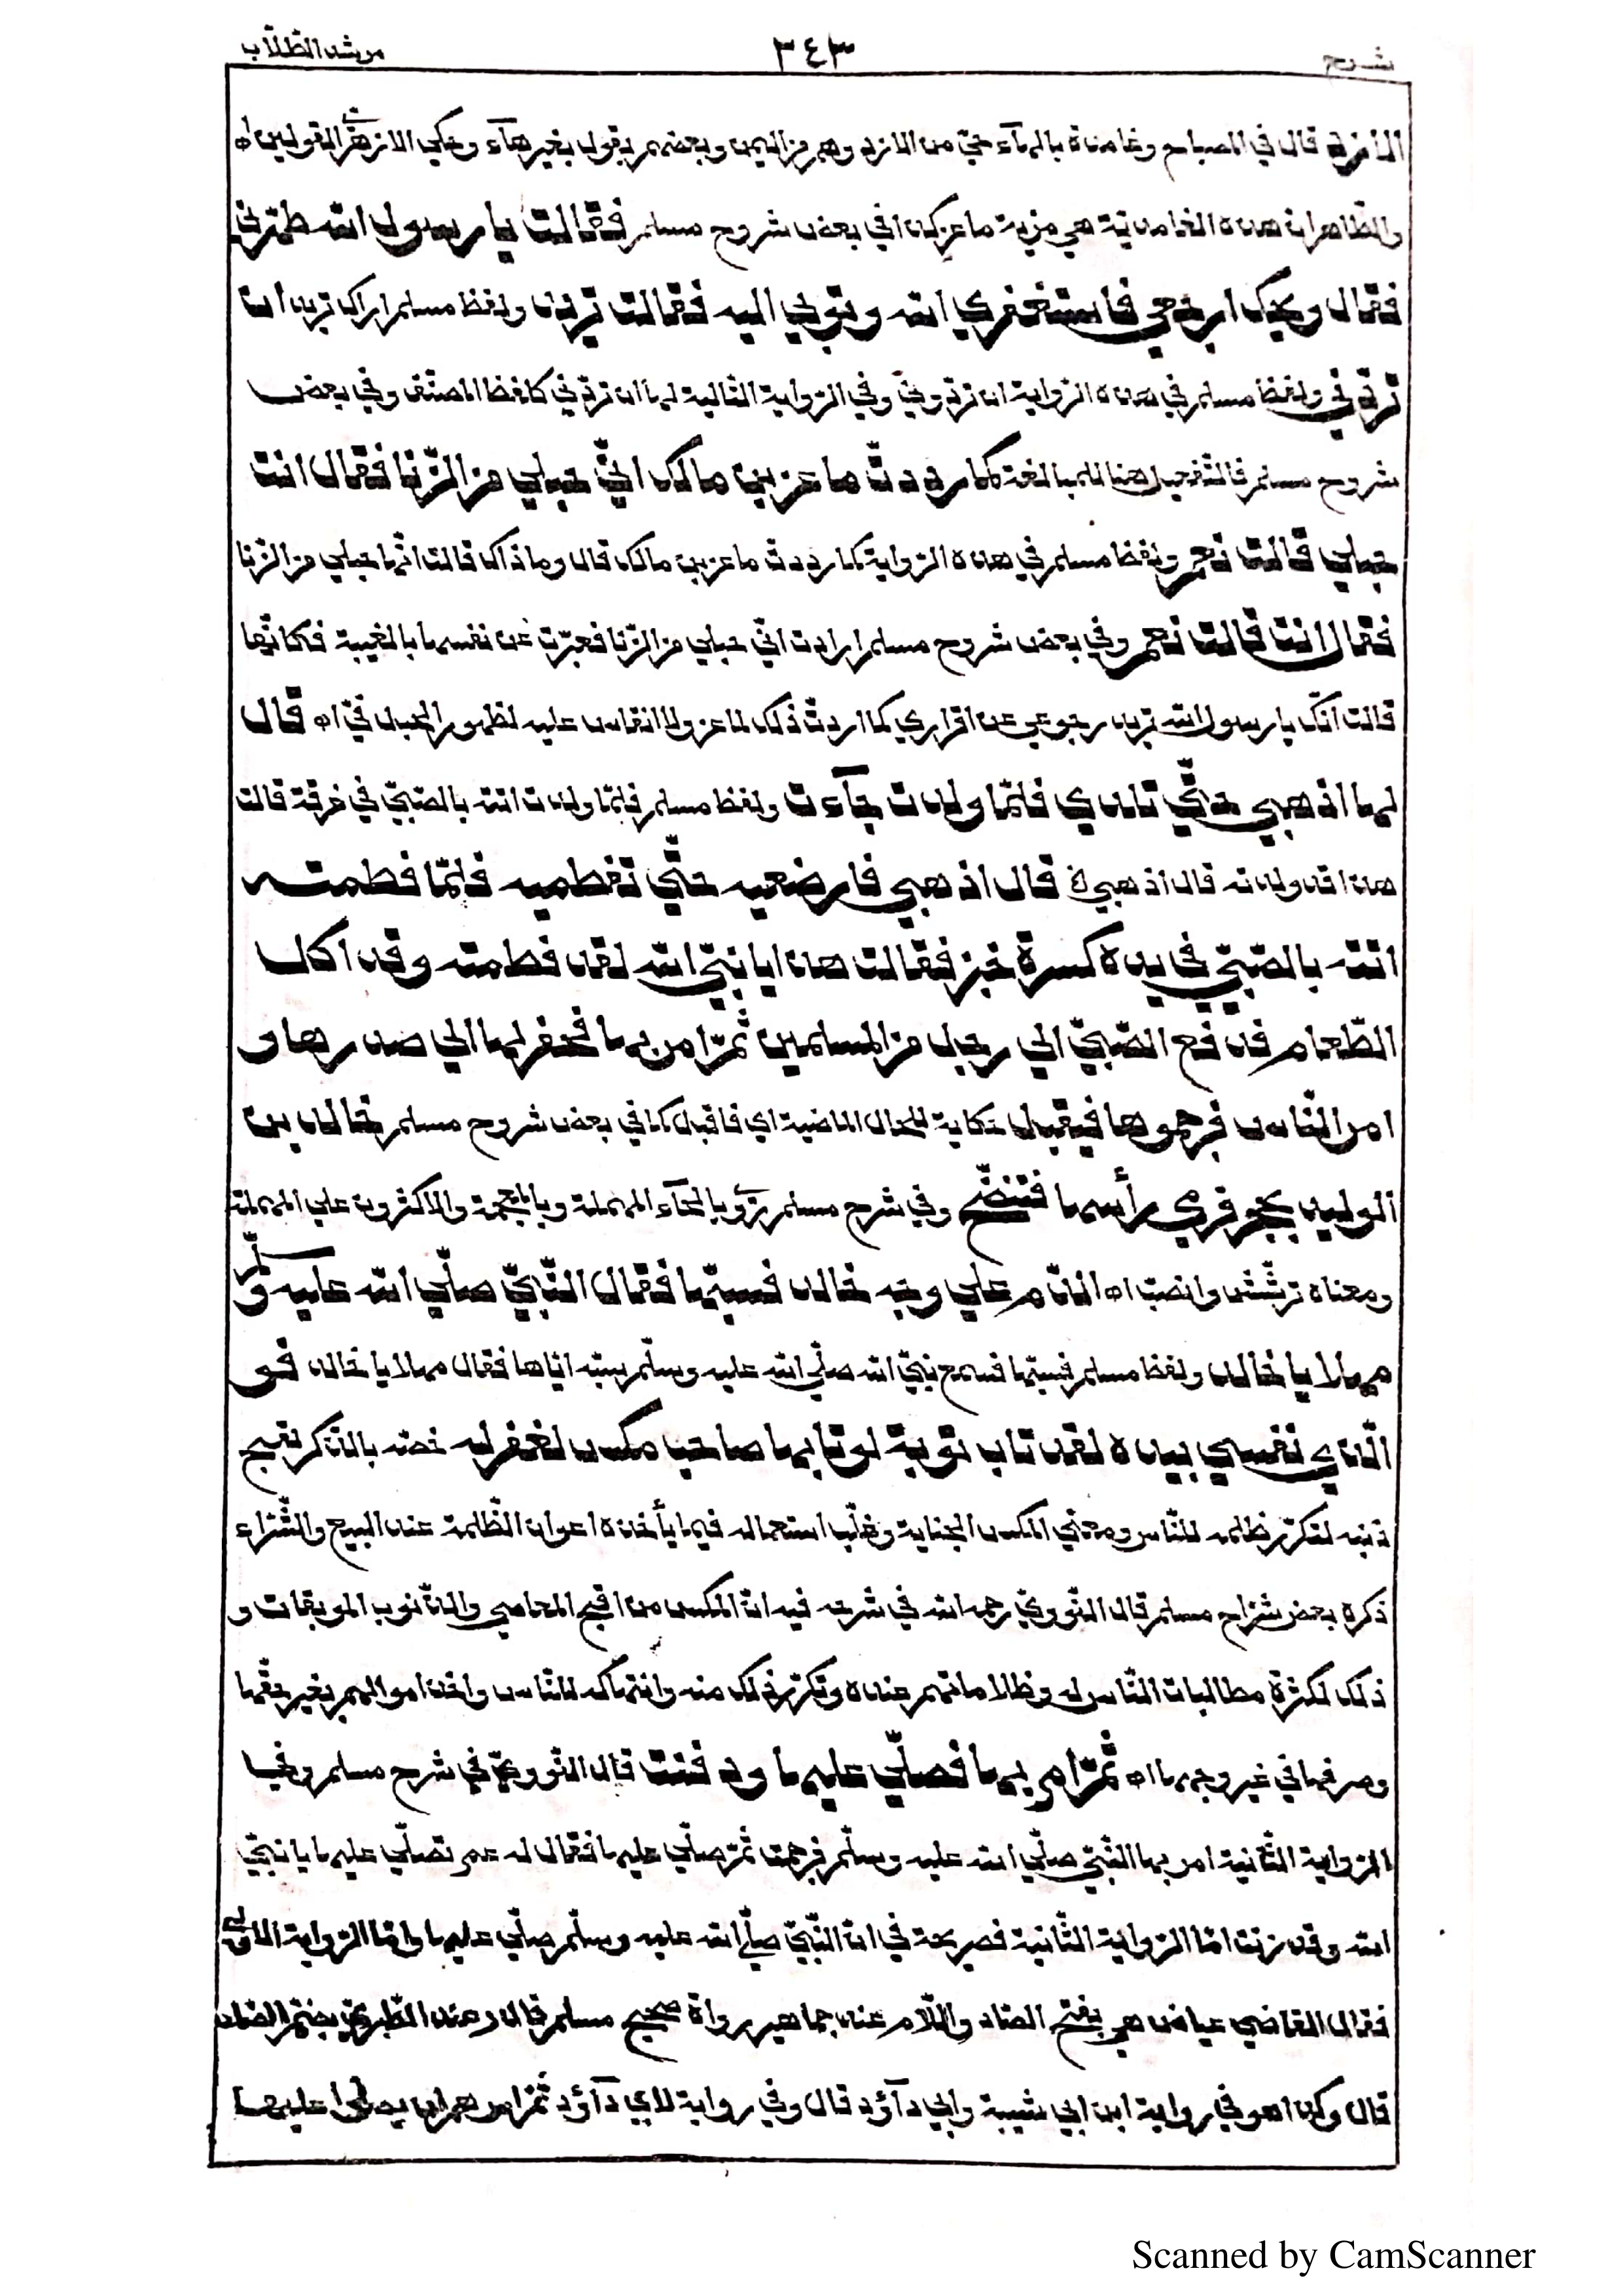 شرح ٣٤٣ مرشد الطّلّاب
الأزد قال في المصباح وغامدة بالهآء حيّ من الازد وهم من اليمن وبعضهم يقول بغير هآء وحكي الازهريّ القولين اه
والظّاهر ان هذه الغامديّة هي مزنية ماعز كذا في بعض شروح مسلم فقالت يا رسول الله طهّرني
فقال ويحك ارجعي فاستغفري الله وتوبي اليه فقالت تريد ولفظ مسلم اراك تريد ان
تردّني ولفظ مسلم في هذه الرّواية ان تردّوني وفي الرّواية التّالية لها ان تردّني كلفظ المصنّف وفي بعض
شروح مسلم فالتّفعيل هنا للمبالغة كما رددتّ ماعز بن مالك انّي حبلي من الزّنا فقال انت
حبلي قالت نعم ولفظ مسلم في هذه الرّواية كما رددت ماعز بن مالك قال وما ذاك قالت انّها حبلي من الزّنا
فقال انت قالت نعم وفي بعض شروح مسلم ارادت انّي حبلي من الزّنا فعبّرت عن نفسها بالغيبة فكانّها
قالت انّك يا رسول الله تريد رجوعي عن اقراري كما اردتّ ذلك لماعز ولا انقاس عليه لظهور الحبل فيّ اه قال
لها اذهبي حتّي تلدي فلمّا ولدت جآءت ولفظ مسلم فلمّا ولدت اتته بالصّبيّ في خرقة قالت
هذا قد ولدته قال اذهبي ة قال اذهبي فارضعيه حتّي تفطميه فلمّا فطمته
اتته بالصّبيّ في يده كسرة خبز فقالت هذا يا نبيّ الله لقد فطمته وقد اكل
الطّعام فدفع الصّبيّ الي رجل من المسلمين ثمّ امر بها فحفر لها الي صدرها و
امر النّاس فرجموها فيقبل حكاية للحال الماضية اي فاقبل كما في بعض شروح مسلم خالد بن
الوليد بحجر فرمي رأسها فتنضّح وفي شرح مسلم رُوي بالحآء المهملة وبالمعجمة والاكثرون علي المهملة
ومعناه ترشّش وانصبّ اه الدّم علي وجه خالد فسبّها فقال النّبيّ صلّي الله عليه وسلّم
مهلا يا خالد ولفظ مسلم فسبّها فسمع نبيّ الله صلّي الله عليه وسلّم سبّه ايّاها فقال مهلا يا خالد فو
الّذي نفسي بيده لقد تاب توبة لو تابها صاحب مكس لغفر له خصّه بالذّكر لقبح
ذنبه لتكرّر ظلمه للنّاس ومعني المكس الجناية وغلب استعماله فيما يأخذه اعوان الظّلمة عند البيع والشّراء
ذكره بعض شرّاح مسلم قال النّوويّ رحمه الله في شرحه فيه انّ المكس من اقبح المعاصي والذّنوب الموبقات و
ذلك لكثرة مطالبات النّاس له وظلاماتهم عنده وتكرّر ذلك منه وانتهاكه للنّاس واخذ اموالهم بغير حقّها
وصرفها في غير وجهها اه ثمّ امر بها فصلّي عليها ودفنت قال النّوويّ في شرح مسلم وفي
الرّواية الثّانية امر بها النّبيّ صلّي الله عليه وسلّم فرجمت ثمّ صلّي عليها فقال له عمر تصلّي عليها يا نبيّ
الله وقد زنت امّا الرّواية الثّانية فصريحة في انّ النّبيّ صلّي الله عليه وسلّم صلّي عليها وامّا الرّواية الاولي
فقال القاضي عياض هي بفتح الصّاد واللّام عند جماهير رواة صحيح مسلم قال وعند الطّبريّ بضمّ الصّاد
قال وكذا هو في رواية ابن ابي شيبة وابي دآؤد قال وفي رواية لابي دآؤد ثمّ امرهم ان يصلّوا عليها
Scanned by CamScanner